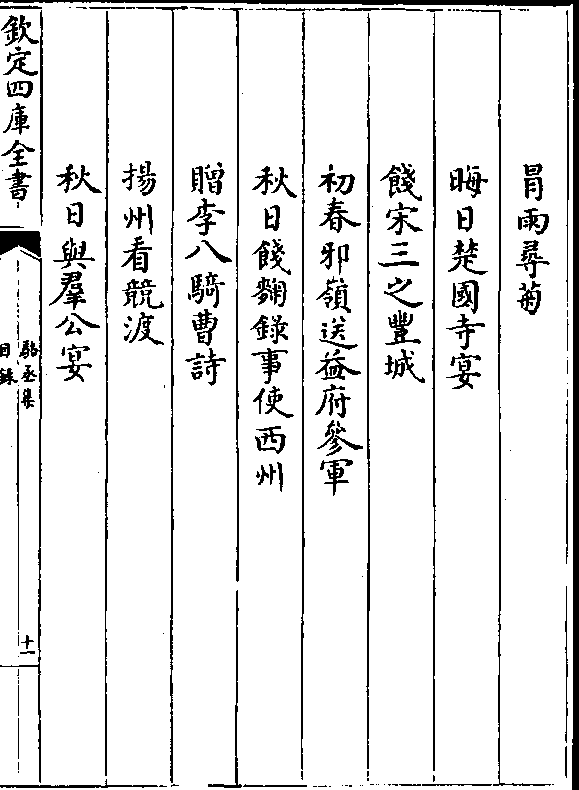 冐雨尋菊
晦日楚國寺宴
餞宋三之豐城
初春邪嶺送益府參軍
秋日餞麴錄事使西州
贈李八騎曹詩
揚州看競渡
秋日與羣公宴
欽定四庫全書
駱丞集
目錄
十一